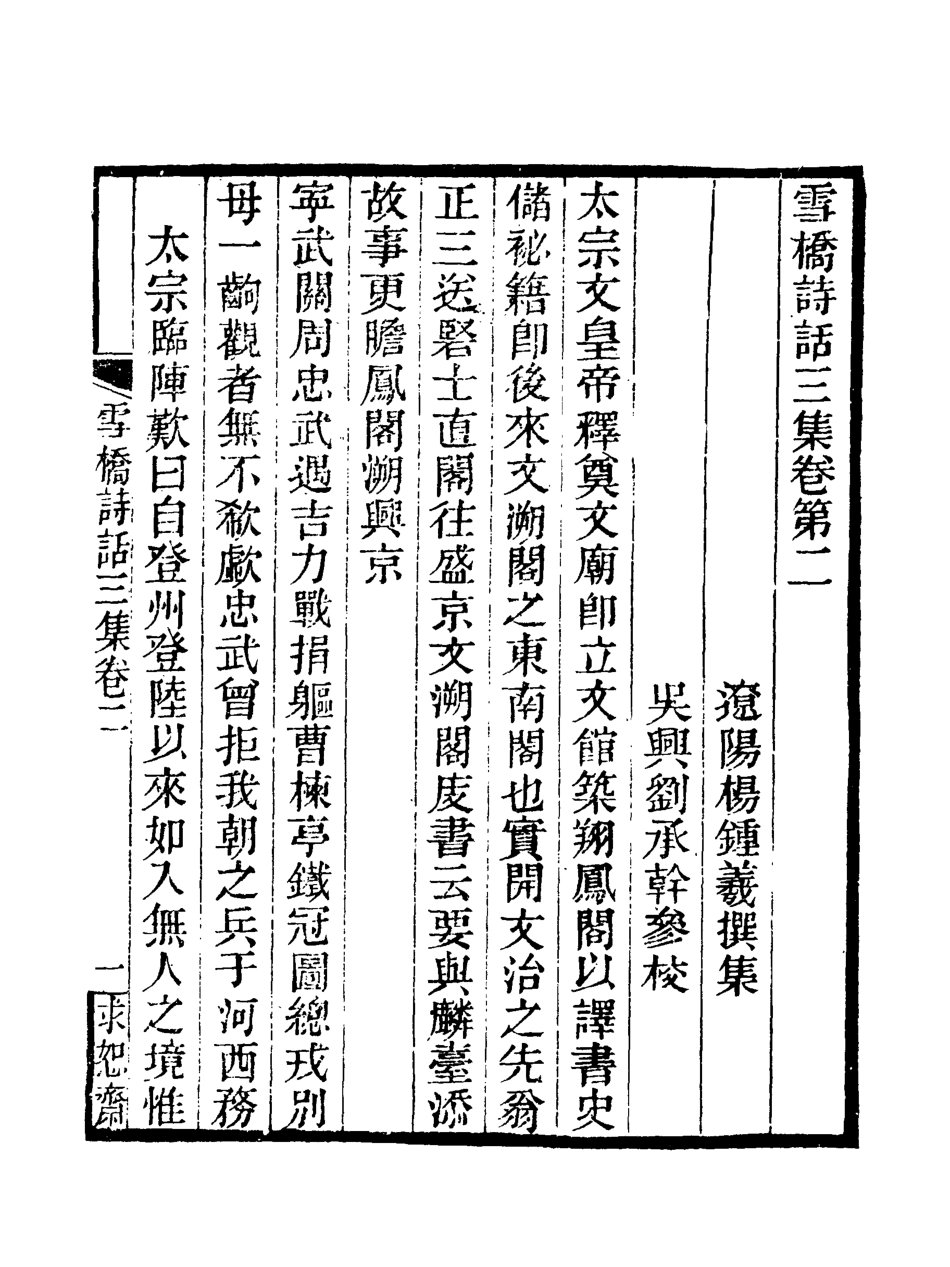 雪橋詩話三集卷第二
遼陽楊鍾羲撰集
吳興劉承幹參校
太宗文皇帝釋奠文廟卽立文館築翔鳳閣以譯書史
儲祕籍卽後來文溯閣之東南閣也實開文治之先翁
正三送硻士直閣往盛京文溯閣庋書云要與麟臺添
故事更瞻鳳閣溯興京
寧武關周忠武遇吉力戰捐軀曹楝亭鐵冠圖總戎別
母一齣觀者無不欷歔忠武曾拒我朝之兵于河西務
太宗臨陣歎曰自登州登陸以來如入無人之境惟
雪橋詩話三集卷二
一
求恕齋